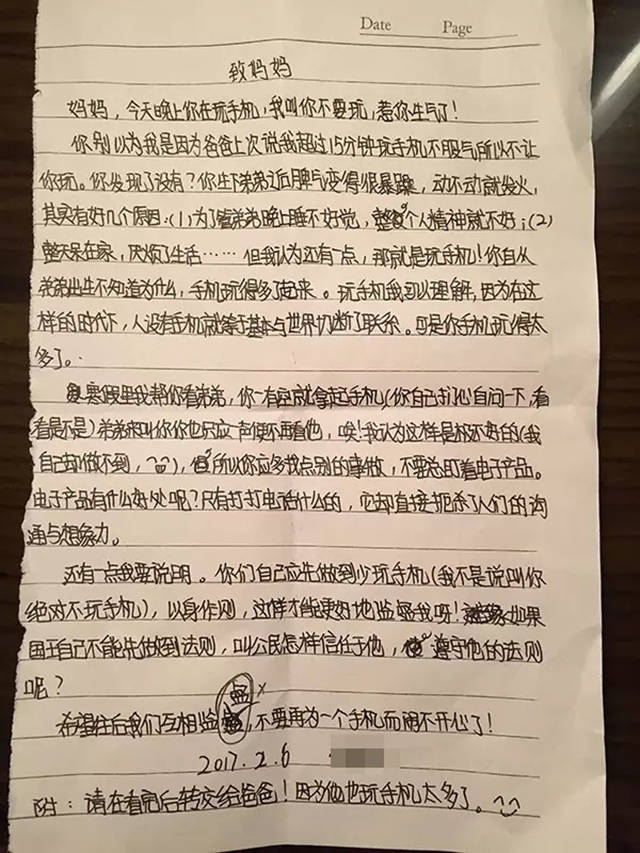 Date Page
致妈妈
妈妈，今天晚上你在玩手机，我叫你不要玩，惹你生气了！
你别以为我是因为爸爸上次说我超过15分钟玩手机不服气所以不让
你玩。你发现了没有？你生下弟弟之后脾气变得很暴躁，动不动就发火，
其实有好几个原因：(1)为了管弟弟晚上睡不好觉，整个人精神就不好；(2)
整天呆在家，厌烦了生活……但我认为还有一点，那就是玩手机！你自从
弟弟出生不知道为什么，手机玩得多了起来。玩手机我可以理解，因为在这
样的时代下，人没有手机就等于基本与世界切断了联系。可是你手机玩得太
多了。
寒假里我帮你看弟弟，你一有空就拿起手机(你自己扪心自问一下，看
看是不是)弟弟来叫你你也只应一声便不再看他，唉！我认为这样是极不好的(我
自己却做不到，)，所以你应多找点别的事做，不要总盯着电子产品。
电子产品有什么好处呢？只有打打电话什么的，它却直接扼杀了人们的沟
通与想象力。
还有一点我要说明。你们自己应先做到少玩手机(我不是说叫你
绝对不玩手机)，以身作则，这样才能更好地监督我呀！如果
国王自己不能先做到法则，叫公民怎样信任于他，遵守他的法则
呢？
希望往后我们互相监督，不要再为一个手机而闹不开心了！
2017.2.6
附：请在看完后转交给爸爸！因为他也玩手机太多了。